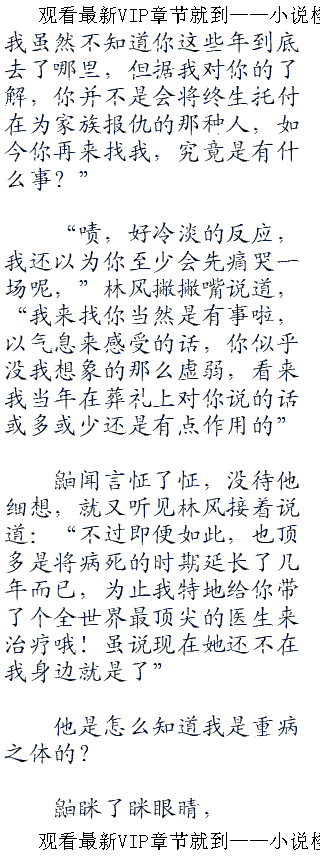 观看最新VIP章节就到——小说楼
我虽然不知道你这些年到底
去了哪里，但据我对你的了
解，你并不是会将终生托付
在为家族报仇的那种人，如
今你再来找我，究竟是有什
么事？”
“啧，好冷淡的反应，
我还以为你至少会先痛哭一
场呢，”林风撇撇嘴说道，
“我来找你当然是有事啦，
以气息来感受的话，你似乎
没我想象的那么虚弱，看来
我当年在葬礼上对你说的话
或多或少还是有点作用的”
鼬闻言怔了怔，没待他
细想，就又听见林风接着说
道：“不过即便如此，也顶
多是将病死的时期延长了几
年而已，为止我特地给你带
了个全世界最顶尖的医生来
治疗哦！虽说现在她还不在
我身边就是了”
他是怎么知道我是重病
之体的？
鼬眯了眯眼睛，
观看最新VIP章节就到——小说楼